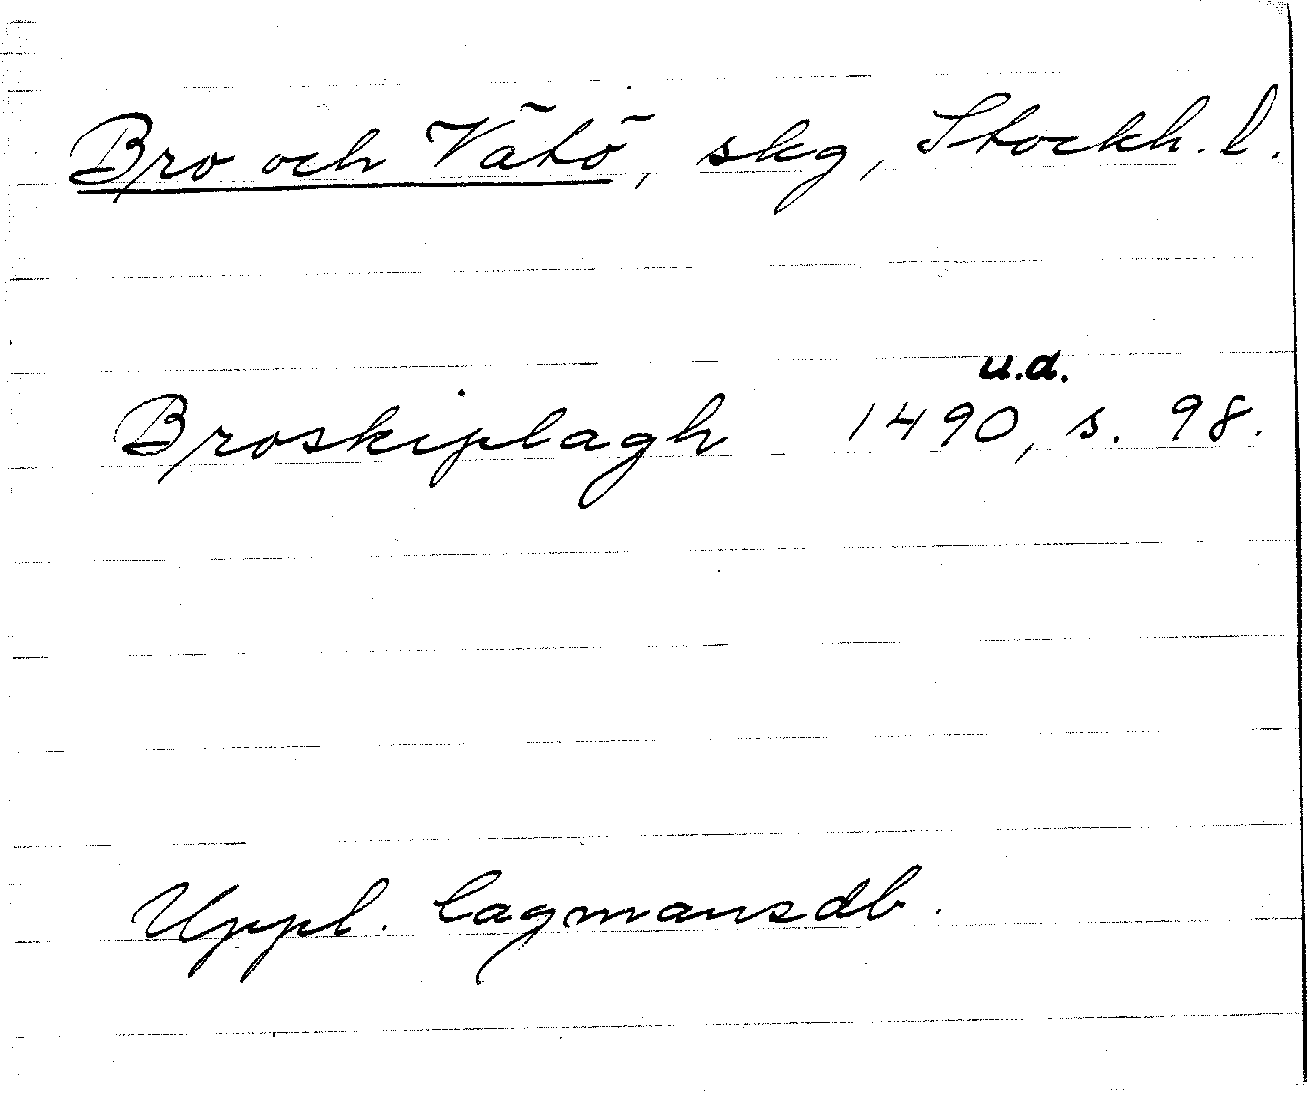 Bro och Vätö, skg, Stockh. l.
u.d.
Broskiplagh 1490, s. 98.
Uppl. lagmansdb.